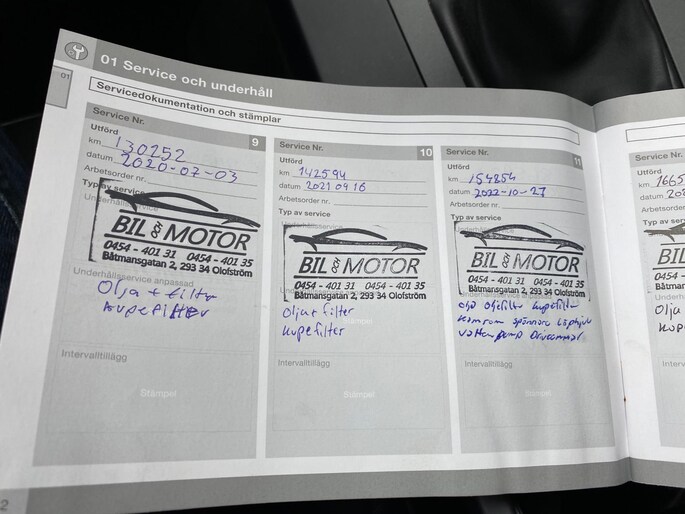 01 Service och underhåll
01
Servicedokumentation och stämplar
Service Nr. 9
Utförd
km 130252
datum 2020-07-03
Arbetsorder nr.
Typ av service
BIL och MOTOR
0454 - 401 31 0454 - 401 35
Båtmansgatan 2, 293 34 Olofström
Underhållsservice anpassad
Olja + filter
kupefilter
Intervalltillägg
Stämpel
Service Nr. 10
Utförd
km 142594
datum 2021 04 16
Arbetsorder nr.
Typ av service
BIL och MOTOR
0454 - 401 31 0454 - 401 35
Båtmansgatan 2, 293 34 Olofström
Olja + filter
kupefilter
Intervalltillägg
Stämpel
Service Nr. 11
Utförd
km 154854
datum 2022-10-27
Arbetsorder nr.
Typ av service
BIL och MOTOR
0454 - 401 31 0454 - 401 35
Båtmansgatan 2, 293 34 Olofström
oljefilter kupefilter
kamrem spännare
vattenpump
Intervalltillägg
Stämpel
Service Nr.
Utförd
km 1665
datum
Arbetsorder nr.
Typ av service
BIL
0454 -
Båtmansg
Olja
Intervalltillägg
2